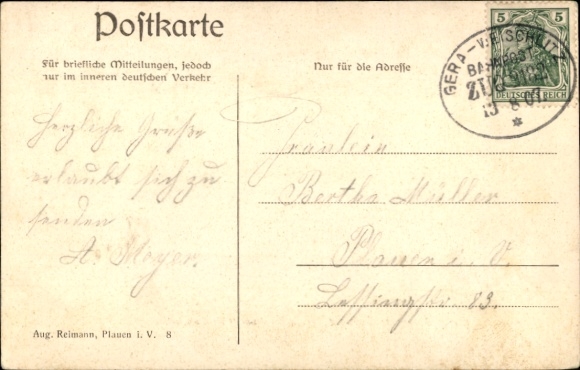 Postkarte
Für briefliche Mitteilungen, jedoch
nur im inneren deutschen Verkehr
Nur für die Adresse
5 5
DEUTSCHES REICH
GERA - W.E.SCHLITZ
BAHNPOST
ZUG
Herzliche Grüße
erlaubt sich zu
senden
A. Meyer.
Fräulein
Bertha Müller
Plauen i. V.
Lessingstr. 83.
Aug. Reimann, Plauen i. V. 8